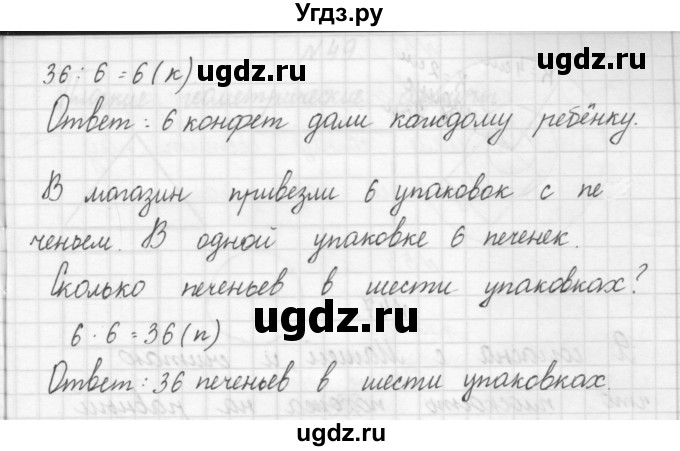 Угдз.ру
36 : 6 = 6 (к) ugdz.ru ugdz.ru
Ответ : 6 конфет дали каждому ребёнку.
В магазин привезли 6 упаковок с пе
ченьем. В одной упаковке 6 печенек.
Сколько печеньев в шести упаковках?
ugdz.ru
6 · 6 = 36 (п)
Ответ : 36 печеньев в шести упаковках.
ugdz.ru